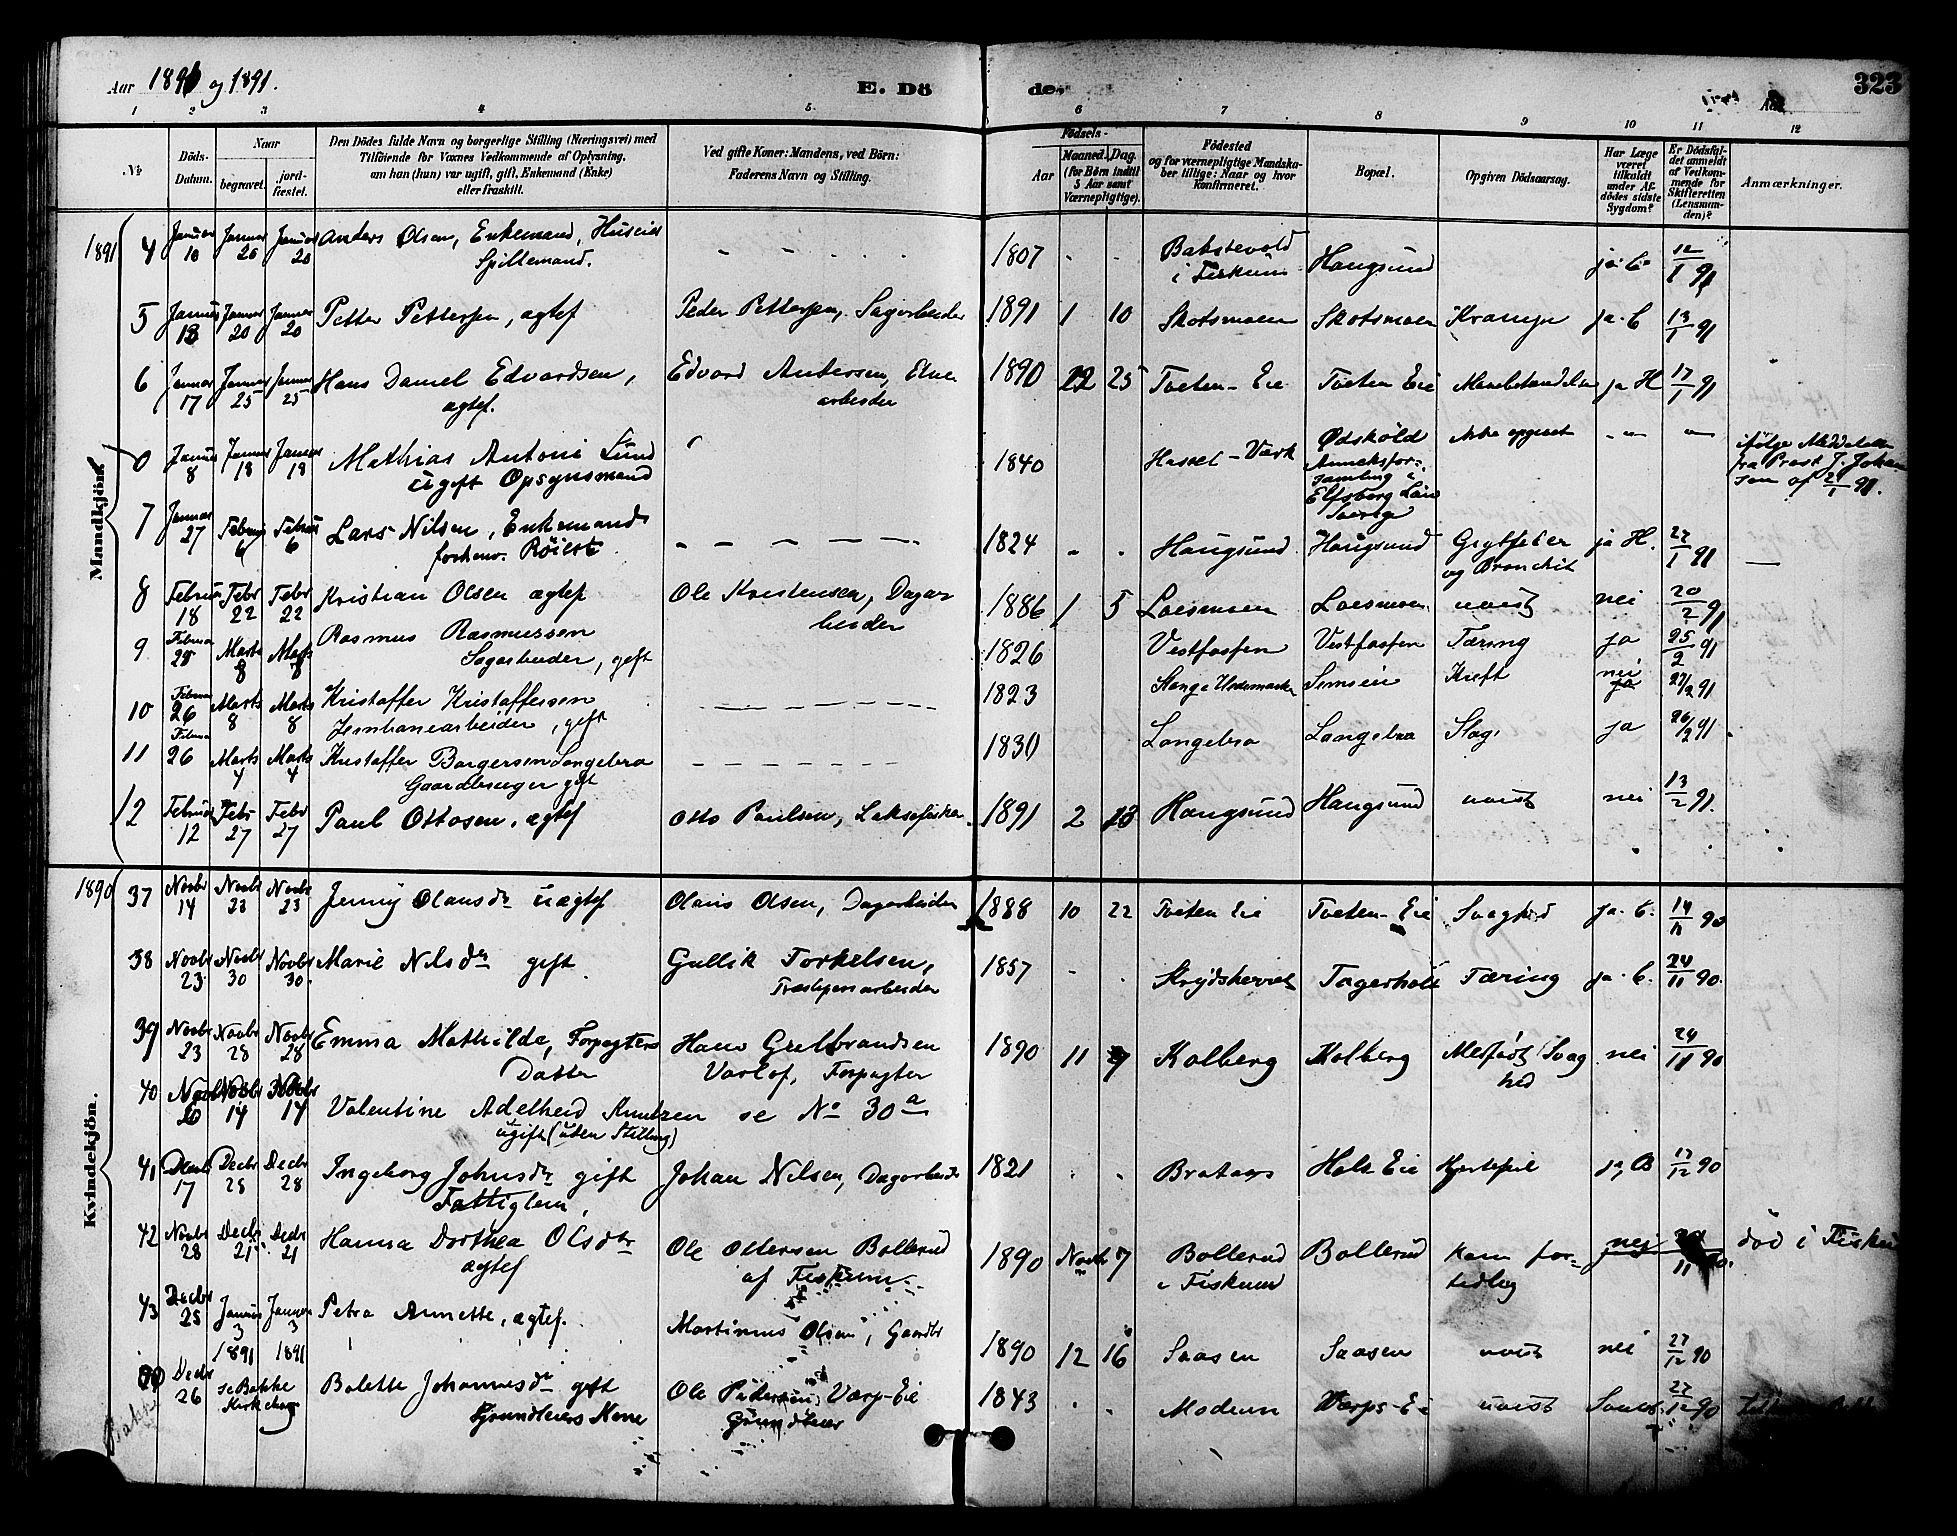 Aar 1890 og 1891.
E. Dö
de
323
1 2 3 4 5 6 7 8 9 10 11 12
No
Döds-Datum.
Naar begravet. jordfæstet.
Den Dödes fulde Navn og borgerlige Stilling (Næringsvei) med
Tilföiende for Voxnes Vedkommende af Oplysning,
om han (hun) var ugift, gift, Enkemand (Enke)
eller fraskilt.
Ved gifte Koner: Mandens, ved Börn:
Faderens Navn og Stilling.
Födsels-
Aar Maaned. Dag.
(for Börn indtil
5 Aar samt
Værnepligtige).
Födested
og for værnepligtige Mandska-
ber tillige: Naar og hvor
konfirmeret.
Bopæl.
Opgiven Dödsaarsag.
Har Læge
været
tilkaldt
under Af-
dödes sidste
Sygdom?
Er Dödsfal-
det anmeldt
af Vedkom-
mende for
Skifteretten
(Lensman-
den)?
Anmærkninger.
Mandkjön.
1891 4 Januar 10 Januar 20 Januar 20 Anders Olsen, Enkemand, Huseier - - 1807 Bakstevold Hougsund ja C. 12/1 91
Spillemand. i Fiskum
5 Januar 13 Januar 20 Januar 20 Petter Pettersen, ægtef Peder Pettersen, Sagarbeider 1891 1 10 Skotsmoen Skotsmoen Krampe ja C 13/1 91
6 Januar 17 Januar 25 Januar 25 Hans Daniel Edvardsen, Edvard Andersen, 1890 12 25 Tveten-Eie Tveten Eie ja H 17/1 91
ægtef. arbeider
0 Januar 8 Januar 18 Januar 18 Mathias Antoni Lund 1840 Hassel-Værk Ødsköld ikke opgivet
ugift Opsynsmand Anneksfor-
samling i
Elfsborg Län
Sverige
ifölge Meddelelse
fra Prost J. Johan
sen af 21/1 91.
7 Januar 27 Februar 6 Februar 6 Lars Nilsen, Enkemand - - - 1824 Hougsund Hougsund Gigtfeber ja H. 27/1 91
forhenv. og Bronchit
8 Februar 18 Febr 22 Febr 22 Kristian Olsen ægtef Ole Kristensen, Dagar 1886 1 5 Loesmoen Loesmoen uvist nei 20/2 91
beider
9 Februar 25 Marts 8 Marts 8 Rasmus Rasmussen 1826 Vestfossen Vestfossen Tæring ja 25/2 91
Sagarbeider, gift
10 Februar 26 Marts 8 Marts 8 Kristoffer Kristoffersen - - - 1823 Stange Hedemarken Semseie Kræft nei 27/2 91
Jernbanearbeider, gift
11 Februar 26 Marts 4 Marts 4 Kristoffer Borgersen Langebro - - - 1830 Langebro Langebro Slag ja 26/2 91.
Gaardbruger gift
12 Februar 12 Febr 27 Febr 27 Paul Ottosen, ægtef Otto Paulsen, Laksefisker 1891 2 Hougsund Hougsund uvist nei 13/2 91.
Kvindekjön.
1890 37 Novbr 14 Novbr 23 Novbr 23 Jenny Olausdr uægtef Olaus Olsen, Dagarbeider 1888 10 22 Tveten Eie Tveten-Eie Svaghed ja C. 14/11 90
38 Novbr 23 Novbr 30 Novbr 30. Marie Nilsdr gift Gullik Torkelsen, 1857 Krydsherred Tagerholt Tæring ja C. 24/11 90.
Træsliperiarbeider
39 Novbr 23 Novbr 28 Novbr 28 Emma Mathilde, Forpagters Hans Gulbrandsen 1890 11 7 Kolberg Kolberg Medfødt Svag nei 24/11 90
Datter Varlof, Forpagter hed
40 Novbr Novbr 14 Novbr 14 Valentine Adelheid Knudsen se No 30 a
ugift (uden Stilling)
41 Decbr 17 Decbr 28 Decbr 28 Ingeborg Johnsdr gift Johan Nilsen, Dagarbeider 1821 Holt Eie Hjertefeil ja, B 17/12 90
Fattiglem,
42 Novbr 28 Decbr 21 Decbr 21 Hanna Dorthea Olsdtr Ole Ottersen Bollerud 1890 Novbr 7 Bollerud Bollerud Kom for- nei
ægtef af Fiskum. i Fiskum tidlig
död i Fiskum
43 Decbr 25 Januar 3 1891 Januar 3 1891 Petra Annette, ægtef. Martinius Olsen, Gaardbr 1890 12 16 Saasen Saasen uvist nei 27/12 90
Decbr 26 se Bakke Kirkebog Bolette Johannesdr gift Ole Pedersen, Værp-Eie 1843 Modum Værps-Eie uvist 27/12 90
Grundeiers Kone Grundeier
Bakke